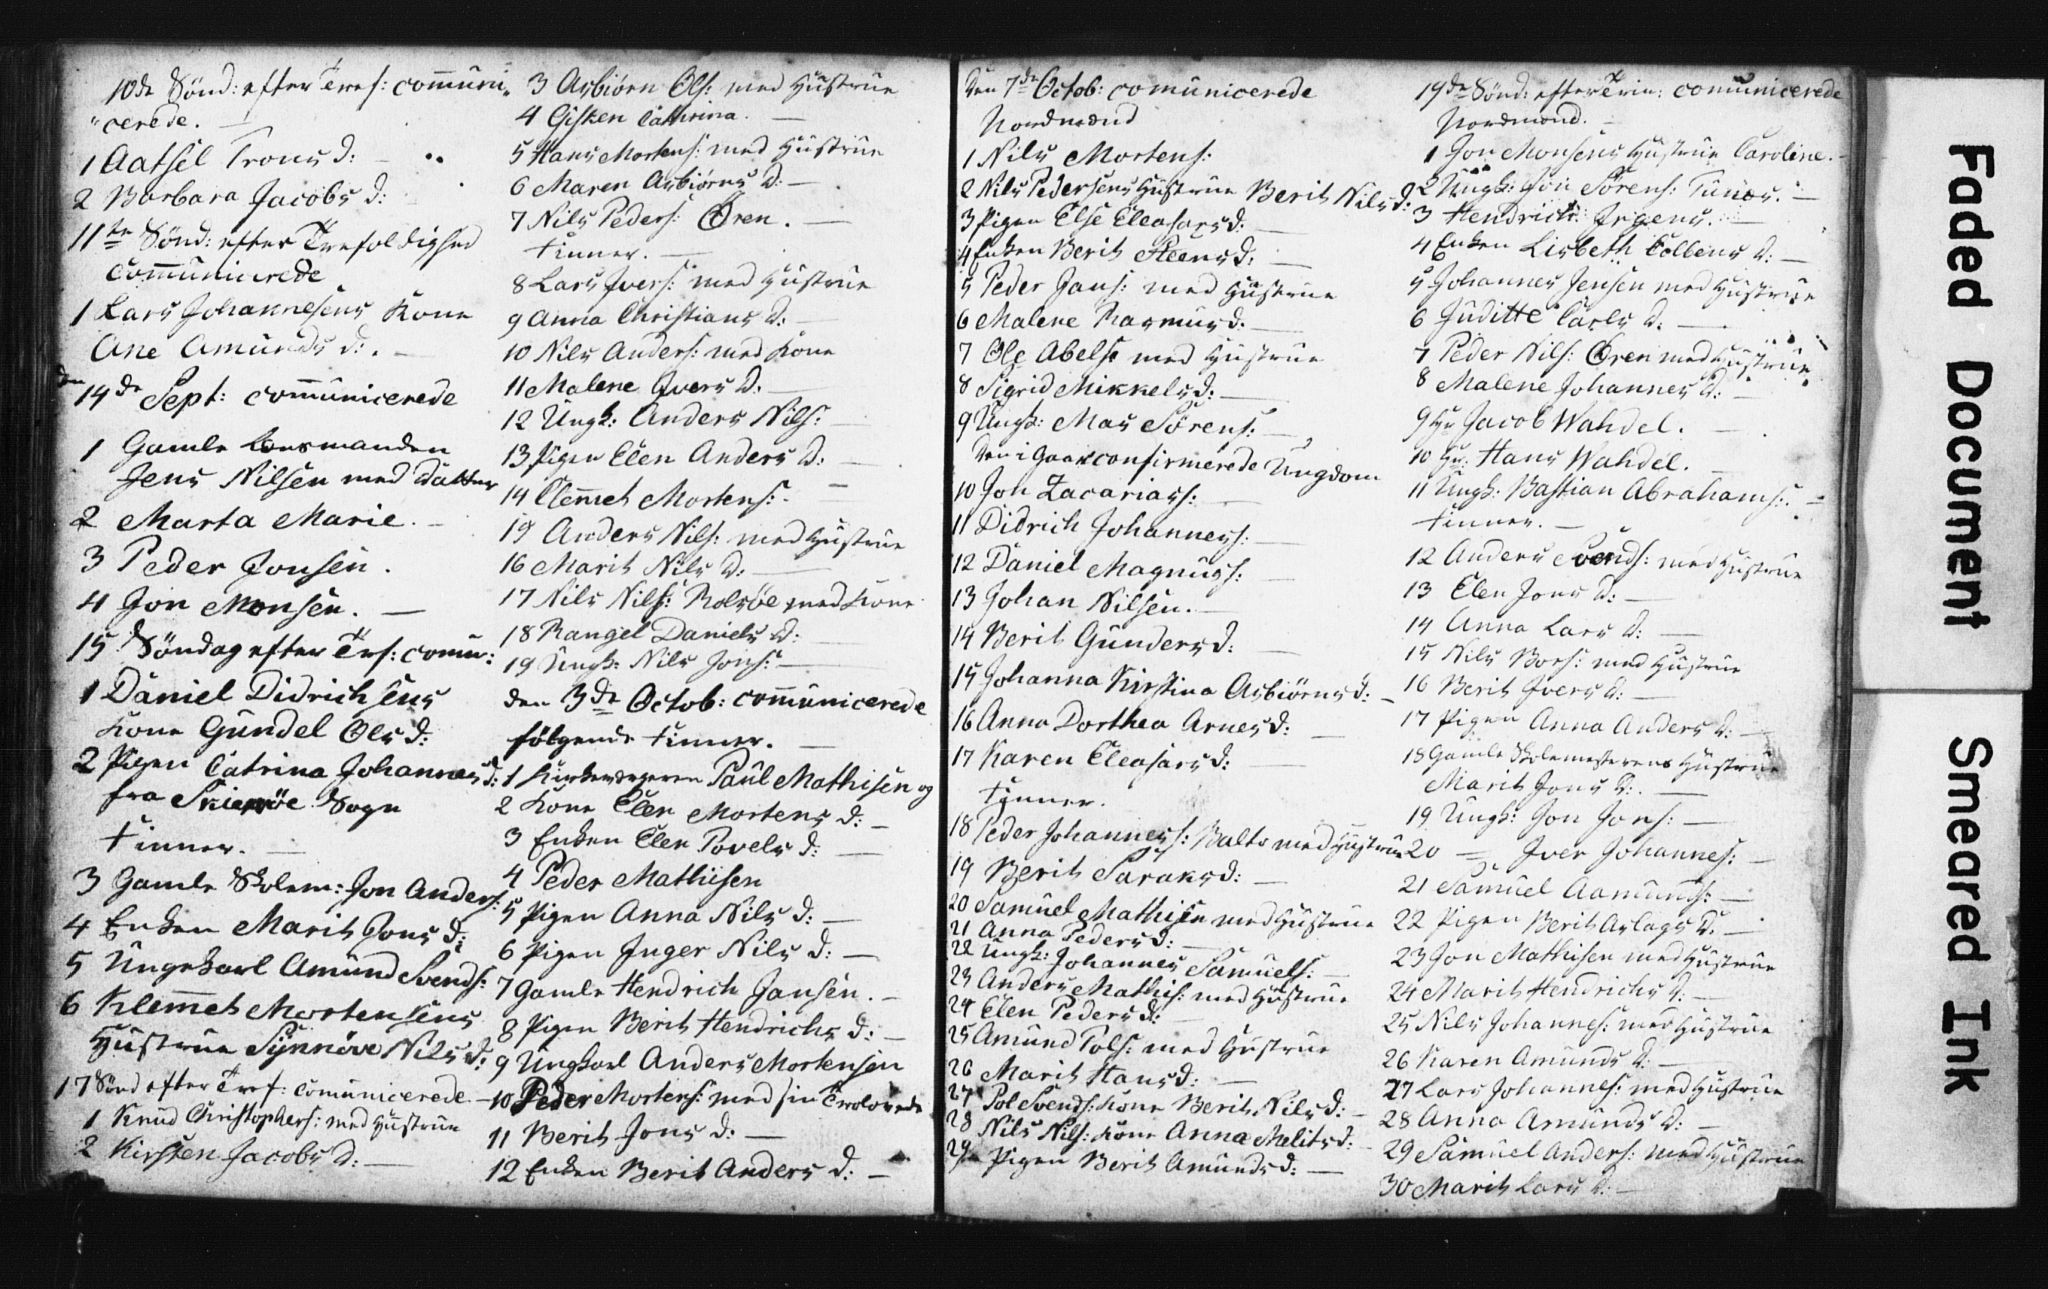 10de Sönd: efter Tref: communi„
"cerede.
1 Aatsel Trons d:
2 Barbara Jacobs d:
11te Sönd: efter Trefoldighed
Communicerede
1 Lars Johannesens Kone
Ane Amunds d:
14de Sept: communicerede
1 Gamle Lensmanden
Jens Nilsen med Datter
2 Marta Marie.
3 Peder Jonsen.
4 Jon Monsen.
15. Söndag efter Tref: comu:
1 Daniel Didrichsens
Kone Gundel Ols d:
2 Pigen Catrina Johannes d:
fra Skiervöe Sogn
Finner.
3 Gamle Skolem: Jon Anders:
4 Enken Marith Jons d:
5 Ungekarl Amund Svends:
6 Klemet Mortensens
Hustrue Synnöve Nils d:
17 Sönd efter Tref: comunicerede
1 Knud Christophers: med Hustrue
2 Kirsten Jacobs d:
3 Asbiörn Ols: med Hustrue
4 Gisken Cathrina.
5 Hans Mortens: med Hustrue
6 Maren Asbiörns d:
7 Nils Peders: Ören.
Finner.
8 Lars Ivers: med Hustrue
9 Anna Christians d:
10 Nils Anders: med Kone
11 Malene Ivers d:
12 Ungk: Anders Nils:
13 Pigen Elen Anders d:
14 Clemet Mortens:
15 Anders Nils: med Hustrue
16 Marit Nils d:
17 Nils Nils: Rolsöe med Kone
18 Rangel Daniels d:
19 Ungk: Nils Jons:
den 3de Octob: communicerede
følgende Finner.
1 Kirkeværgeren Paul Mathisen og
2 Kone Elen Mortens d:
3 Enken Elen Povels d:
4 Peder Mathisen
5 Pigen Anna Nils d:
6 Pigen Inger Nils d:
7 Gamle Hendrich Jansen.
8 Pigen Berith Hendrichs d:
9 Ungkarl Anders Mortensen
10 Peder Mortens: med sin Trolovede
11 Berith Jons d:
12 Enken Berit Anders d:
Den 7de Octob: comunicerede
Nordmænd
1 Nils Mortens:
2 Nils Pedersens Hustrue Berit Nils d:
3 Pigen Else Eleasars d:
4 Enken Berit Steens d:
5 Peder Jans: med Hustrue
6 Malene Rasmus d:
7 Ole Abels: med Hustrue
8 Sigrid Mikkels d:
9 Ungk: Mas Sörens:
Den i Gaar confirmerede Ungdom
10 Jon Zacarias:
11 Didrich Johannes:
12 Daniel Magnus:
13 Johan Nilsen.
14 Berit Gunders d:
15 Johanna Kirstina Asbiörns d:
16 Anna Dorthea Arnes d:
17 Karen Eleasars d:
Finner.
18 Peder Johannes: Balto med Hustrue
19 Berit Saraks d:
20 Samuel Mathisen med Hustrue
21 Anna Peders d:
22 Ungk: Johannes Samuels:
23 Anders Mathis: med Hustrue
24 Elen Peders d:
25 Amund Pols: med Hustrue
26 Marit Hans d:
27 Pol Svends: Kone Berit Nils d:
28 Nils Nils: Kone Anna Melits d:
29 Pigen Berit Amunds d:
19de Sönd: efter Trin: comunicerede
Nordmænd.
1 Jon Monsens Hustrue Caroline.
2 Ungk: Jon Sörens:
3 Hendrich Jrgens.
4 Enken Lisbeth Colbens d:
5 Johannes Jensen med Hustrue
6 Juditte Carls d.
7 Peder Nils: Ören med Hustrue
8 Malene Johannes d:
9 Hr Jacob Wahdel.
10 Hr: Hans Wahdel.
11 Ungk: Bastian Abrahams:
Finner.
12 Anders Svends: med Hustrue
13 Elen Jons d:
14 Anna Lars d:
15 Nils Bors: med Hustrue
16 Berit Ivers d:
17 Pigen Anna Anders d:
18 Gamle Skolemesterens Hustrue
Marith Jons d:
19 Ungk: Jon Jons:
20 — Iver Johannes:
21 Samuel Aamunds:
22 Pigen Berit Aslags d:
23 Jon Mathisen med Hustrue
24 Marith Hendrichs d:
25 Nils Johannes: med Hustrue
26 Karen Amunds d:
27 Lars Johannes: med Hustrue
28 Anna Amunds d:
29 Samuel Anders: med Hustrue
30 Marith Lars d:
Faded Document
Smeared Ink